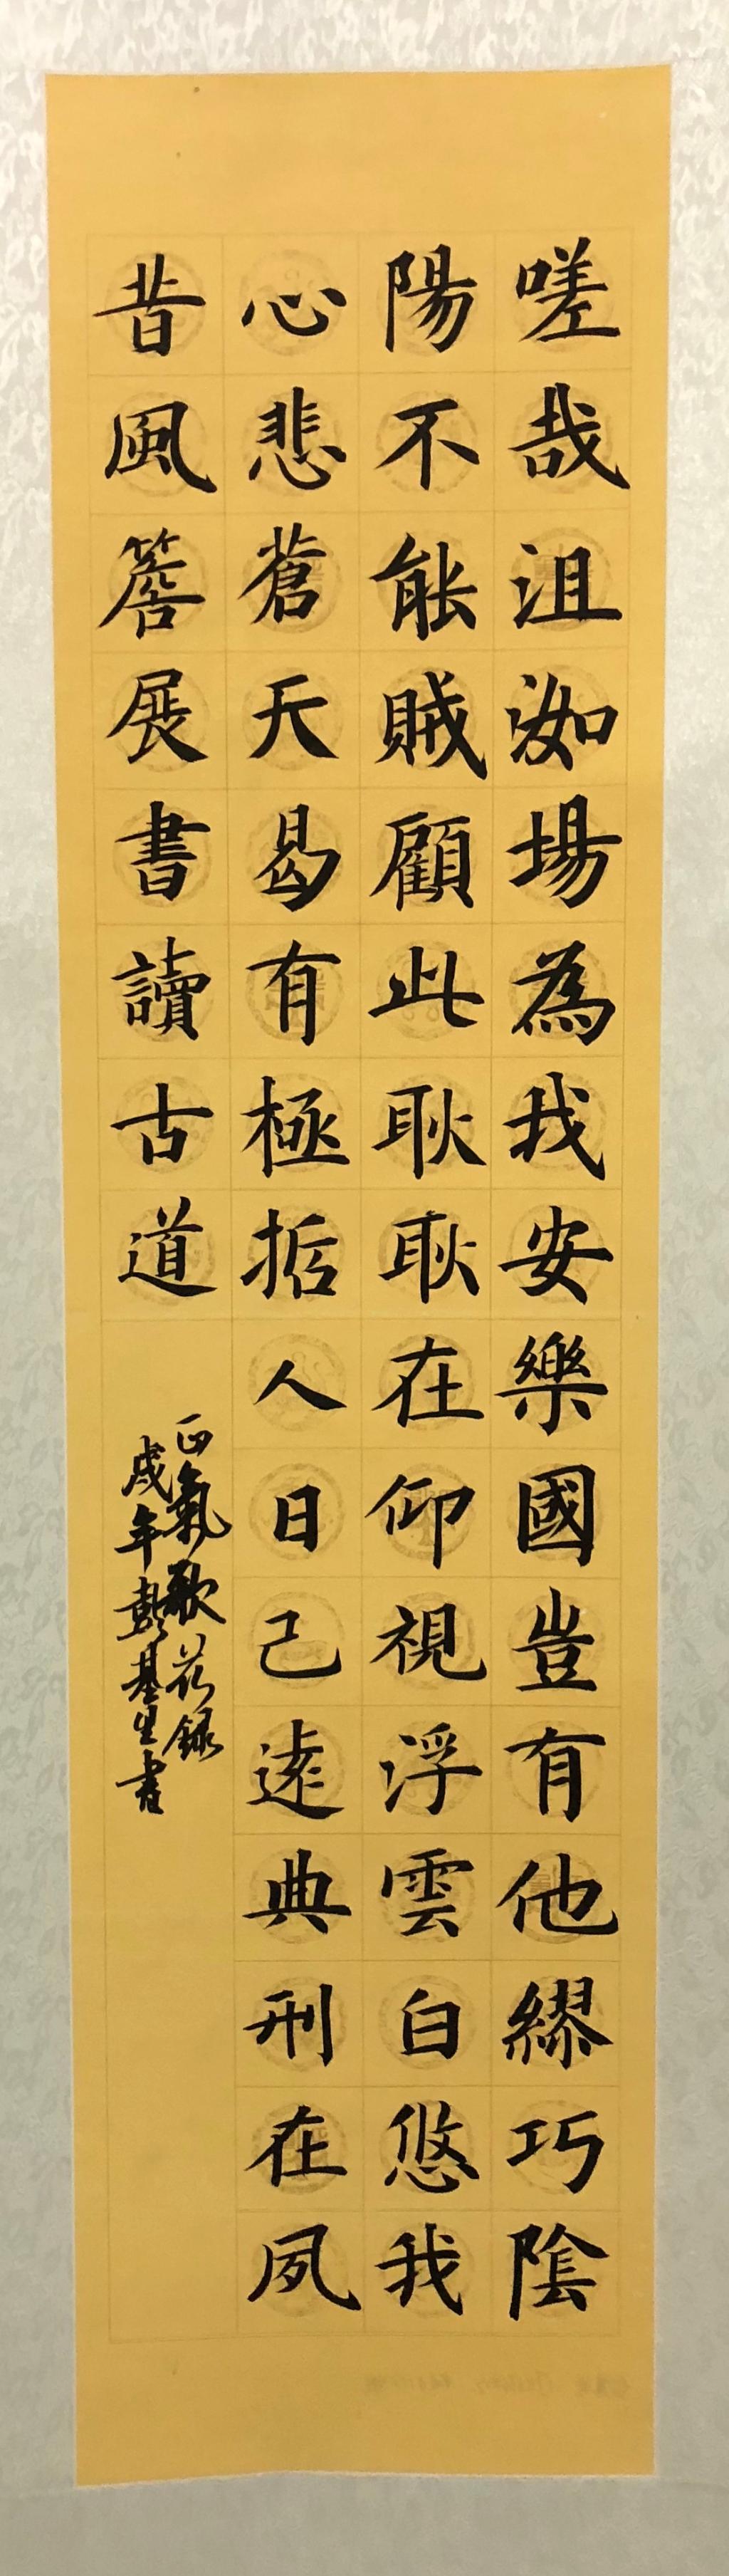 嗟哉沮洳場為我安樂國豈有他繆巧陰
陽不能賊顧此耿耿在仰視浮雲白悠我
心悲蒼天曷有極哲人日已遠典刑在夙
昔風簷展書讀古道
正氣歌節錄
戌年彭基生書